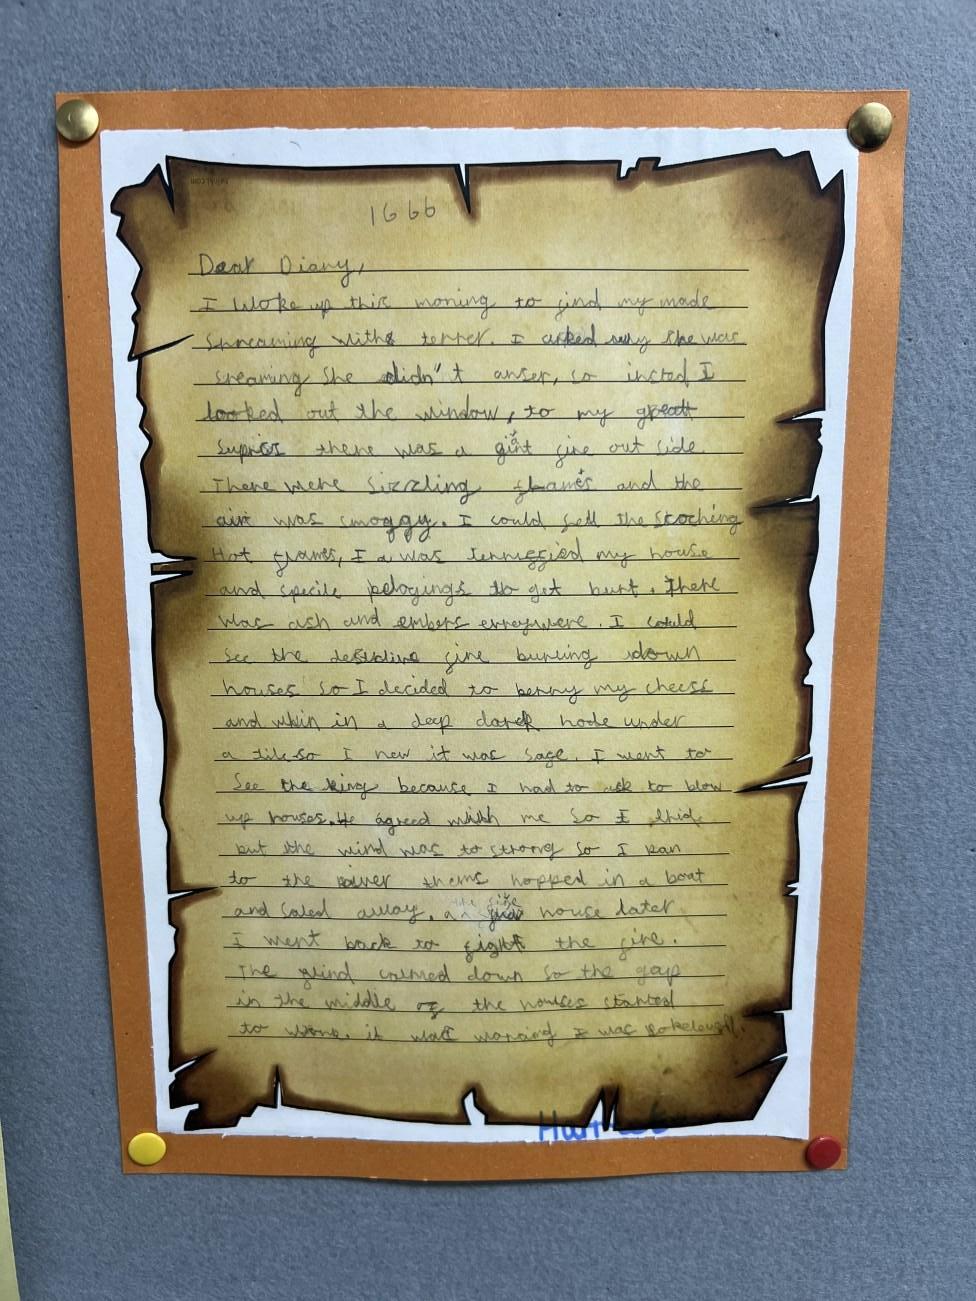 1666
Dear Diary,
I Woke up this moning to find my made
Spreaming with terrer. I asked why she was
screaming She didn't anser, so insted I
looked out the window, to my great
Supriss there was a giant fire out side
There were Sizzling flames and the
air was smoggy. I could sell the scoching
Hot flames, I was terruffied my house
and specile pelogings to get burt. There
was ash and embers erreywere. I could
See the destrlive fire burning down
houses So I decided to berry my cheess
and whin in a deep darck hode under
a tile so I new it was Safe. I went to
See the king because I had to ask to blow
up houses. He agreed with me So I did
but the wind was to strong So I ran
to the rawer thems hopped in a boat
and Saled away. a house later
I went back to fight the fire.
The wind calmed down So the gap
in the middle of the houses started
to worke. it was I was